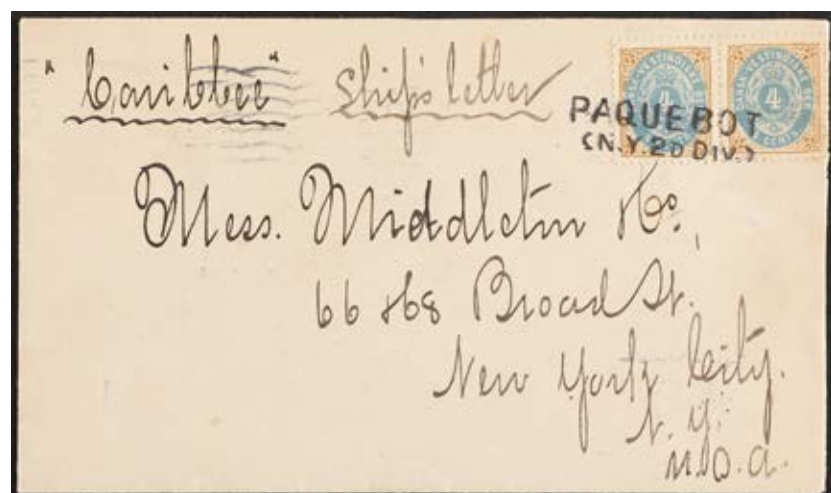 "Caribbee" Ship's letter
PAQUEBOT
(N.Y. 2D DIV.)
4 4
CENTS
Mess. Middleton & Co.,
66 & 68 Broad St.
New York City.
N. Y.
U. S. A.